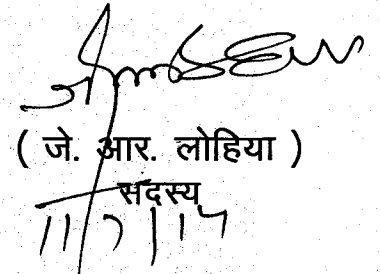 ( जे. आर. लोहिया )
सदस्य
11/7/14